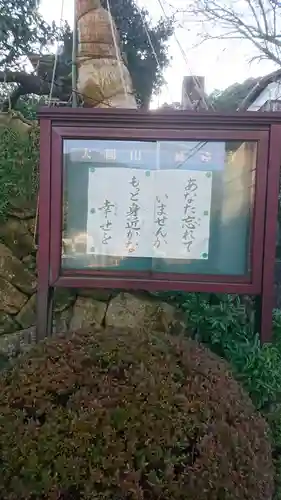 あなた忘れて
いませんか
もっと身近かな
幸せを